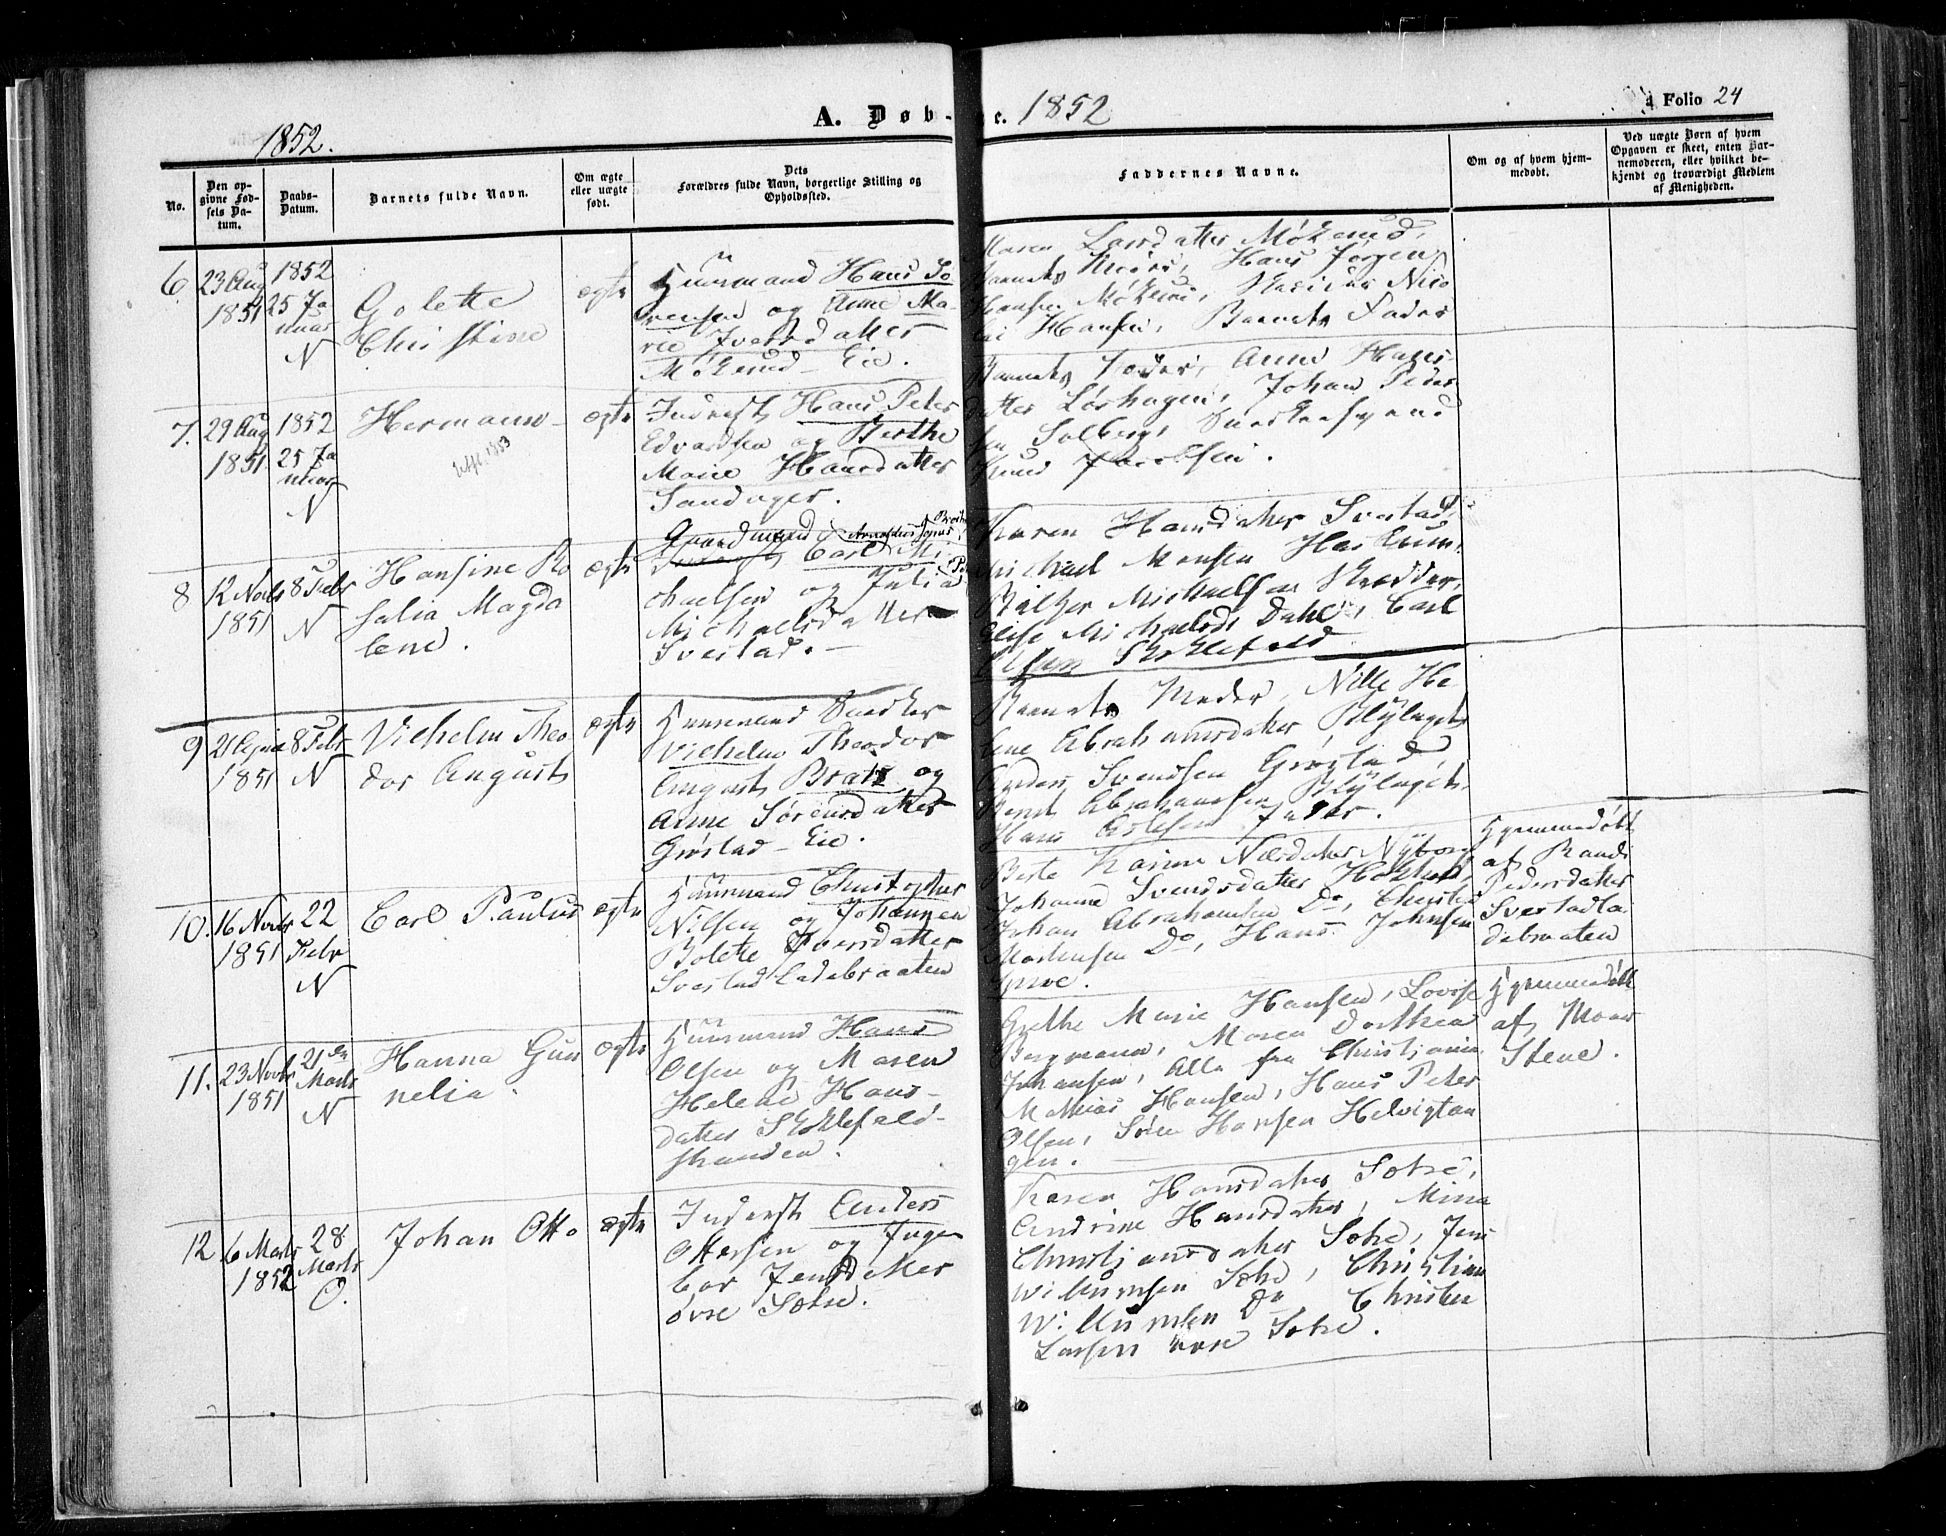 1852.
A. Døb-
e. 1852
Folio 24
No.
Den op-
givne Fød-
sels Da-
tum.
Daabs-
Datum.
Barnets fulde Navn.
Om ægte
eller uægte
født.
Dets
Forældres fulde Navn, borgerlige Stilling og
Opholdssted.
Faddernes Navne.
Om og af hvem hjem-
medøbt.
Ved uægte Børn af hvem
Opgaven er skeet, enten Bar-
nemoderen, eller hvilket be-
kjendt og troværdigt Medlem
af Menigheden.
6
23 Aug
1851
1852
25 Ja
nuar
N
Golette
Christine
ægte
Huusmand Hans So
rensen og Anne Ma-
rie Iversdatter
Eie.
Maren Larsdatter
Barnets Moder, Hans Jørgen
Hansen Nico
lai Hansen, Barnets Fader
7.
29 Aug
1851
1852
25 Ja
nuar
N
Hermann
1853
ægte
Inderst Hans Peter
Edvardsen og Berthe
Marie Hansdatter
Sandager.
Barnets Moder, Anne Hans
datter Johan Peder
sen Solberg,
Knud Jacobsen.
8
12 Novbr
1851
8 Febr
N
Hansine Ro
salia Magda
lene.
ægte
Gaardmand
Carl Mi
chaelsen og Julia
Michaelsdatter
Svestad.
Karen Hansdatter Svestad,
Michael Monsen
Baltzer Michaelsen
Elise Michaelsd. Dahl, Carl
Olsen Skoklefald
9
1851
8 Febr
N
Vilhelm Theo
dor August
ægte
Huusmand Snedker
Vilhelm Theodor
August Bratz og
Anne Sørensdatter
Grøstad Eie.
Barnets Moder, Nille He
lene Abrahamsdatter Blylaget
Anders Svendsen Grøstad,
Bernt Abrahamsen Blylaget
Hans Fader.
10.
16 Novbr
1851
22
Febr
N
Carl Paulus
ægte
Huusmand Christopher
Nilsen og Johanne
Bolette Iversdatter
Svestad Ladebraaten
Berte Karine Nilsdatter
Johanne Svendsdatter
Johan Abrahamsen Do, Christen
Mortensen Do, Hans Johnsen
Hjemmedøbt
af Randi
Pedersdatter
Svestadla
debraaten
11.
23 Novbr
1851
21de
Marts
N
Hanna Gun
nelia.
ægte
Huusmand Hans
Olsen og Maren
Helene Hans-
datter Skoklefald-
stranden.
Grethe Marie Hansen, Lovise
Bergmann, Maren Dorthea
Johansen, Alle fra Christiania
Mathias Hansen, Hans Peter
Olsen, Sören Hansen Helvigtan
gen.
Hjemmedøbt
af Moer
Stene.
12
6 Marts
1852
28
Marts
O.
Johan Otto
ægte
Inderst Anders
Ottersen og Inge
bor Jensdatter
övre
Karen Hansdatter
Andrine Hansdatter, Mina
Christiansdatter Jens
Willumsen Christian
Willumsen Do Christen
Larsen övre